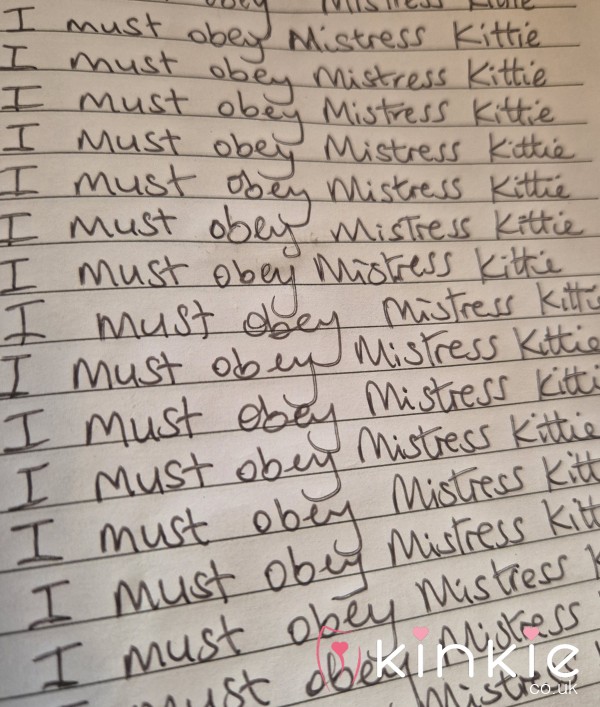 obey Mistress Kittie
I must obey Mistress Kittie
I must obey Mistress Kittie
I must obey Mistress Kittie
I must obey Mistress Kittie
I must obey Mistress Kittie
I must obey Mistress Kittie
I must obey Mistress Kittie
I must obey Mistress Kitti
I must obey Mistress Kittie
I must obey Mistress Kitti
I must obey Mistress Kittie
I must obey Mistress Kitt
I must obey Mistress Kitt
I must obey Mistress K
I must obey Mistress
must obey Mistress
kinkie
.co.uk